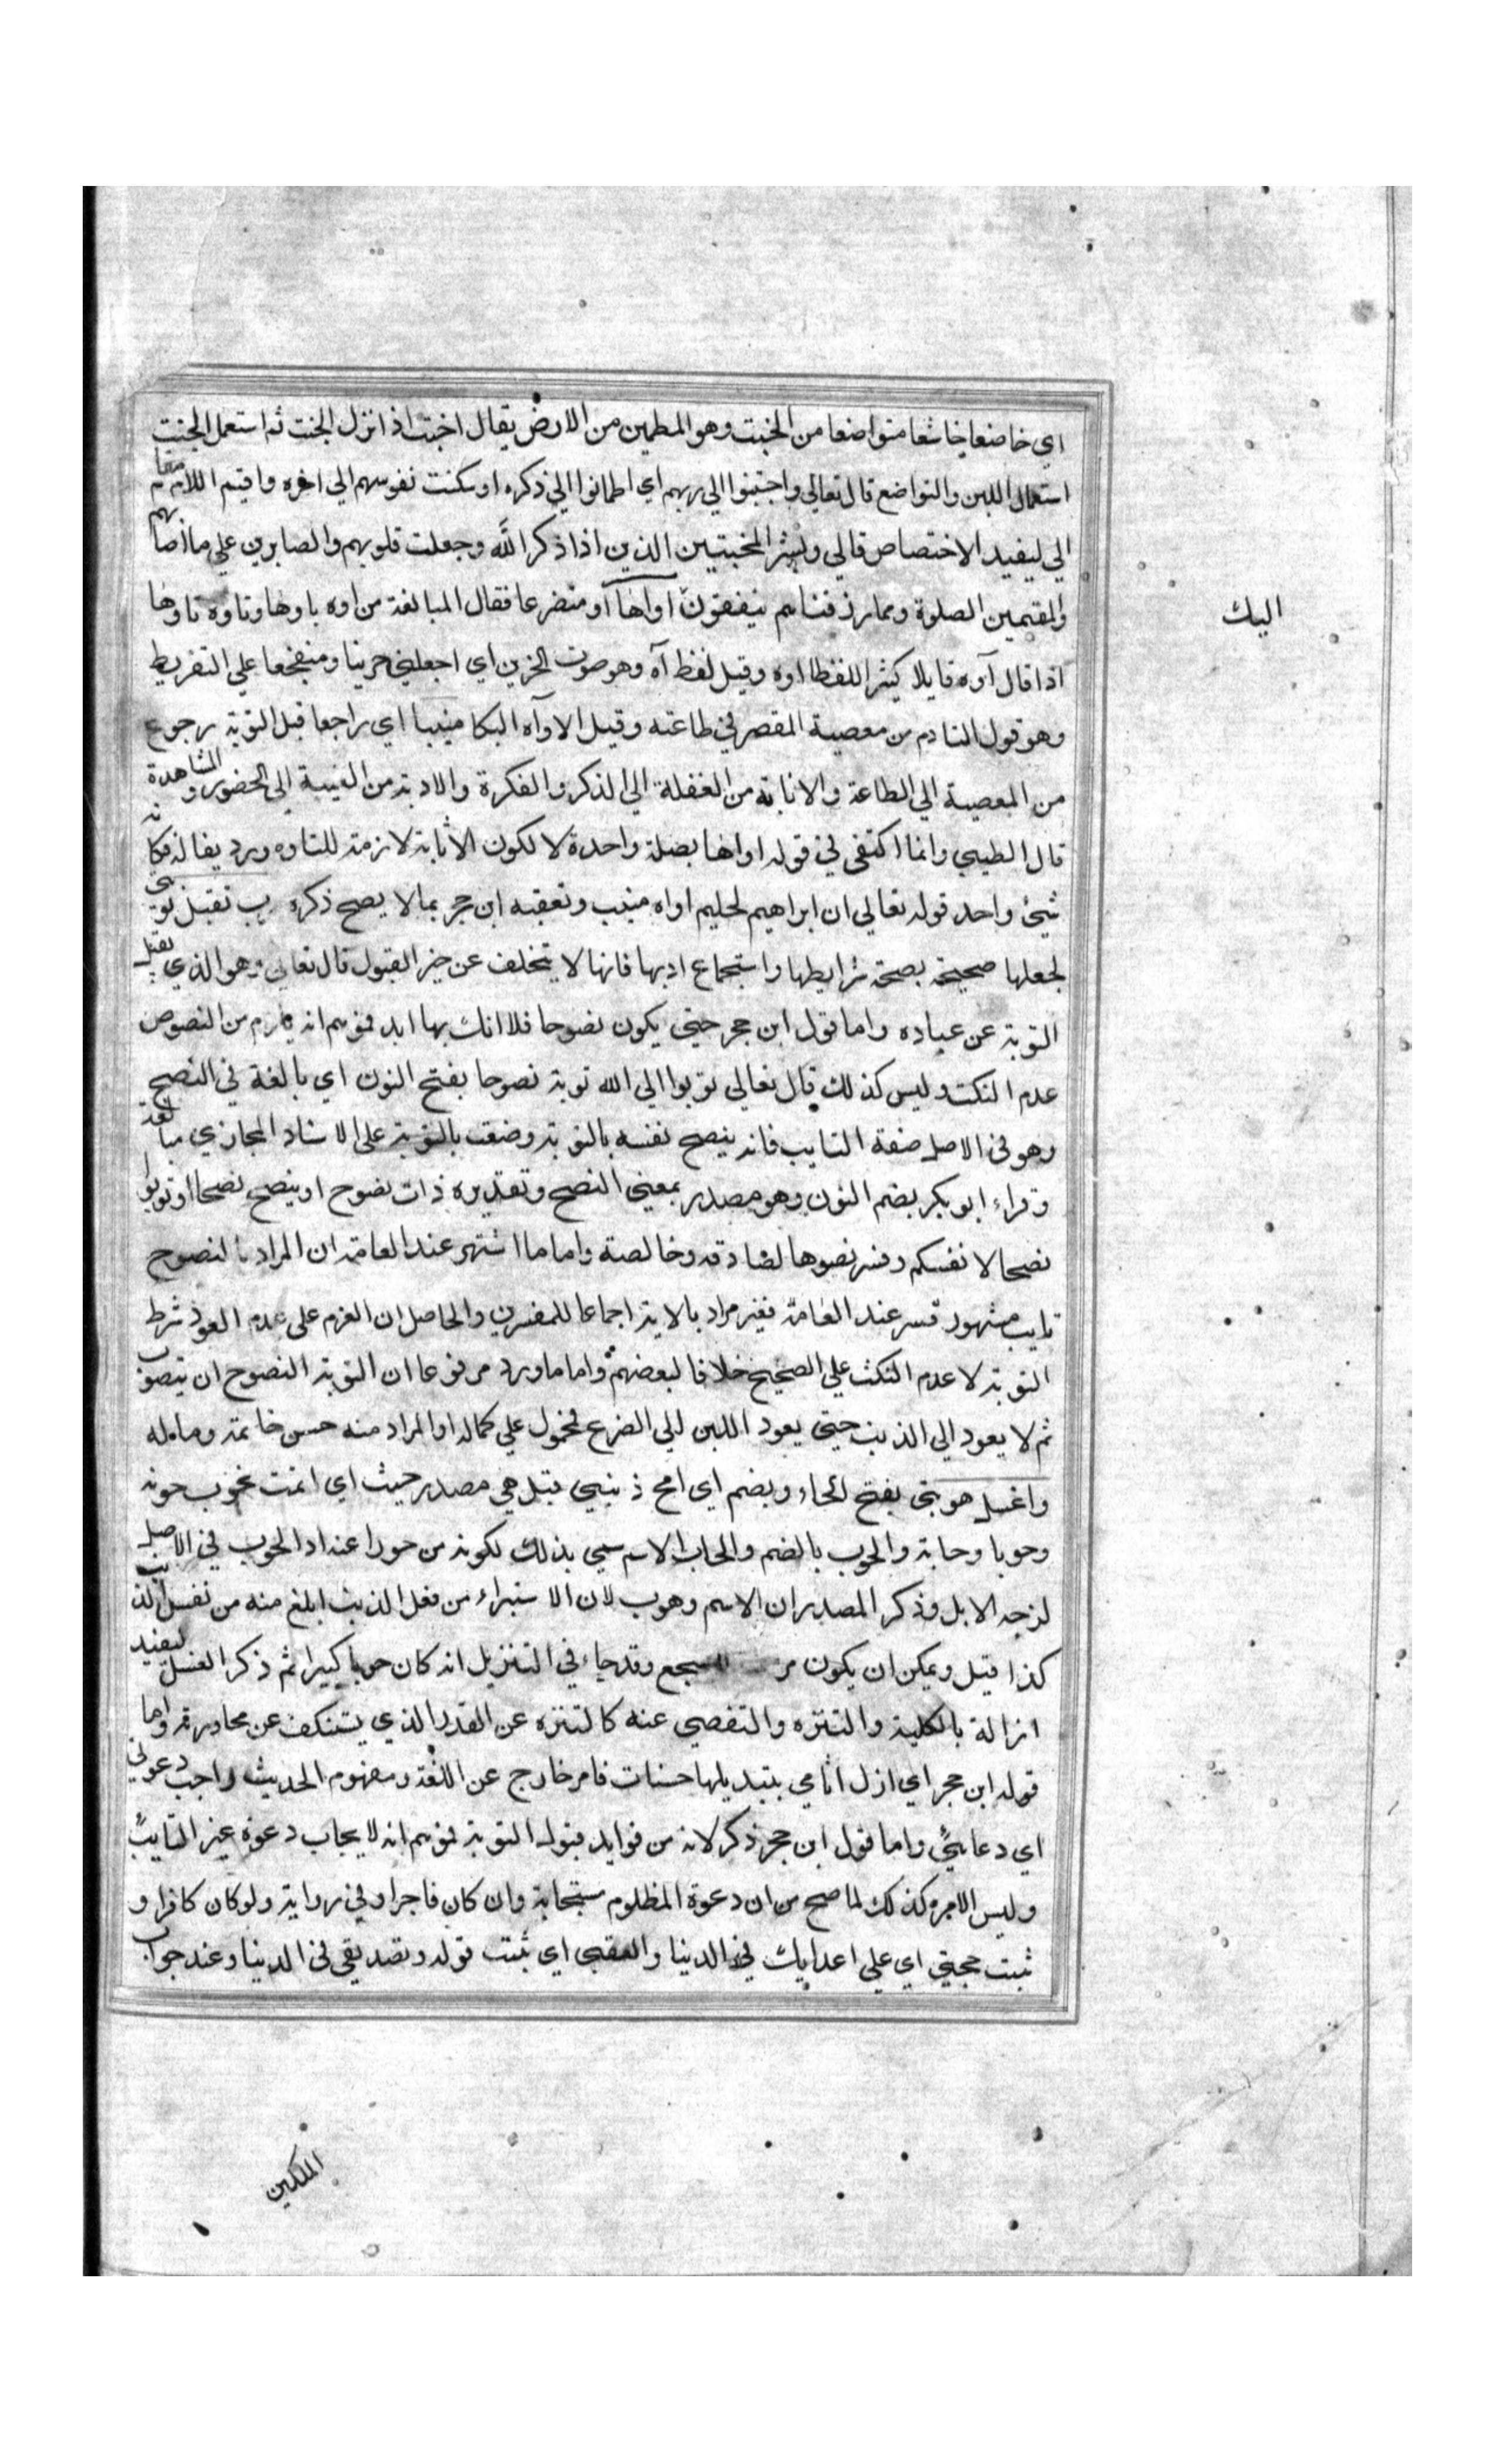 اي خاضعا خاشعا متواضعا من الخبت وهو المطمين من الارض يقال اخبت اذا نزل الخبت ثم استعمل الخبت
استعمال اللين والتواضع قال تعالي واخبتوا الي ربهم اي اطمانوا الي ذكره او سكنت نفوسهم الي اخره واقيم اللام مقام
الي ليفيد الاختصاص قالي وبشر المخبتيين الذين اذا ذكر الله وجعلت قلوبهم والصابرين علي ما اصابهم
والمقيمين الصلوة ومما رزقناهم ينفقون اواها او متضرعا فقال المبالغة من اوه ياوها وتاوه تاوها
اليك
اذا قال آوه قايلا كثير اللفظ اوه وقيل لفظ آه وهو صوت الحزين اي اجعلني حزينا ومتفجعا علي التفريط
وهو قول النادم من معصية المقصر في طاعته وقيل الاوآه البكا منيبا اي راجعا قيل التوبة رجوع
من المعصية الي الطاعة والانابة من الغفلة الي الذكر والفكرة والادبة من الغيبة الي الحضور والمشاهدة
قال الطيبي وانما اكتفي في قوله اواها بصلة واحدة لا لكون الاثابة لازمة للتاوه ورديفا له فكانه
شيئ واحد قوله تعالي ان ابراهيم لحليم اواه منيب وتعقبه ابن حجر بما لا يصح ذكره رب تقبل توبتي
لجعلها صحيحة بصحة شرايطها واستجماع ادبها فانها لا يتخلف عن حيز القبول قال تعالي وهو الذي يقبل
التوبة عن عباده واما قول ابن حجر حتي يكون نصوحا فلا انكث بها ابد فموهم انه يلزم من النصوص
عدم النكث وليس كذلك قال تعالي توبوا الي الله توبة نصوحا بفتح النون اي بالغة في النصح
وهو في الاصل صفة التايب فانه ينصح نفسه بالتوبة وصفت بالتوبة علي الاسناد المجازي مبالغة
وقراء ابو بكر بضم النون وهو مصدر بمعني النصح وتقديره ذات نصوح او ينصح نصحا او توبوا
نصحا لانفسكم وفسر نصوها لصادقه وخالصة واما ما اشتهر عند العامة ان المراد بالنصوح
تايب مشهور قسر عند العامة فغير مراد بالاية اجماعا للمفسرين والحاصل ان العزم علي عدم العود شرط
التوبة لا عدم النكث علي الصحيح خلافا لبعضهم واما ما ورد مرفوعا ان التوبة النصوح ان يتوب
ثم لا يعود الي الذنب حتي يعود اللبن الي الضرع فمحمول علي كماله او المراد منه حسن خاتمة وماله
واغسل هوبتي بفتح الحاء ويضم اي امح ذنبي قيل هي مصدر حيث اي اثمت نحوب حوبه
وحوبا وحابة والحوب بالضم والحاب الاسم سمي بذلك لكونه من حورا عنه اذ الحوب في الاصل
لزجه الابل وذكر المصدر ان الاسم وهوب لان الاستبراء من فعل الذنب ابلغ منه من نفس الذنب
كذا قيل ويمكن ان يكون السجع وقد جاء في التنزيل انه كان حوبا كبيرا ثم ذكر الغسل ليفيد
ازالة بالكلية والتنزه والتفصي عنه كالتنزه عن القذر الذي يستنكف عن مجاورته واما
قوله ابن حجر اي ازل اثامي بتبديلها حسنات فامر خارج عن اللغة ومفهوم الحديث واجب دعوتي
اي دعاءي واما قول ابن حجر ذكر لانه من فوايد قبوله التوبة فموهم انه لا يجاب دعوة غير التايب
وليس الامر وكذلك لما صح من ان دعوة المظلوم مستجابة وان كان فاجرا وفي رواية ولو كان كافرا و
ثبت حجتي اي علي اعدايك في الدينا والعقبي اي ثبت قوله وتصديقي في الدينا وعند جواب
الملكين